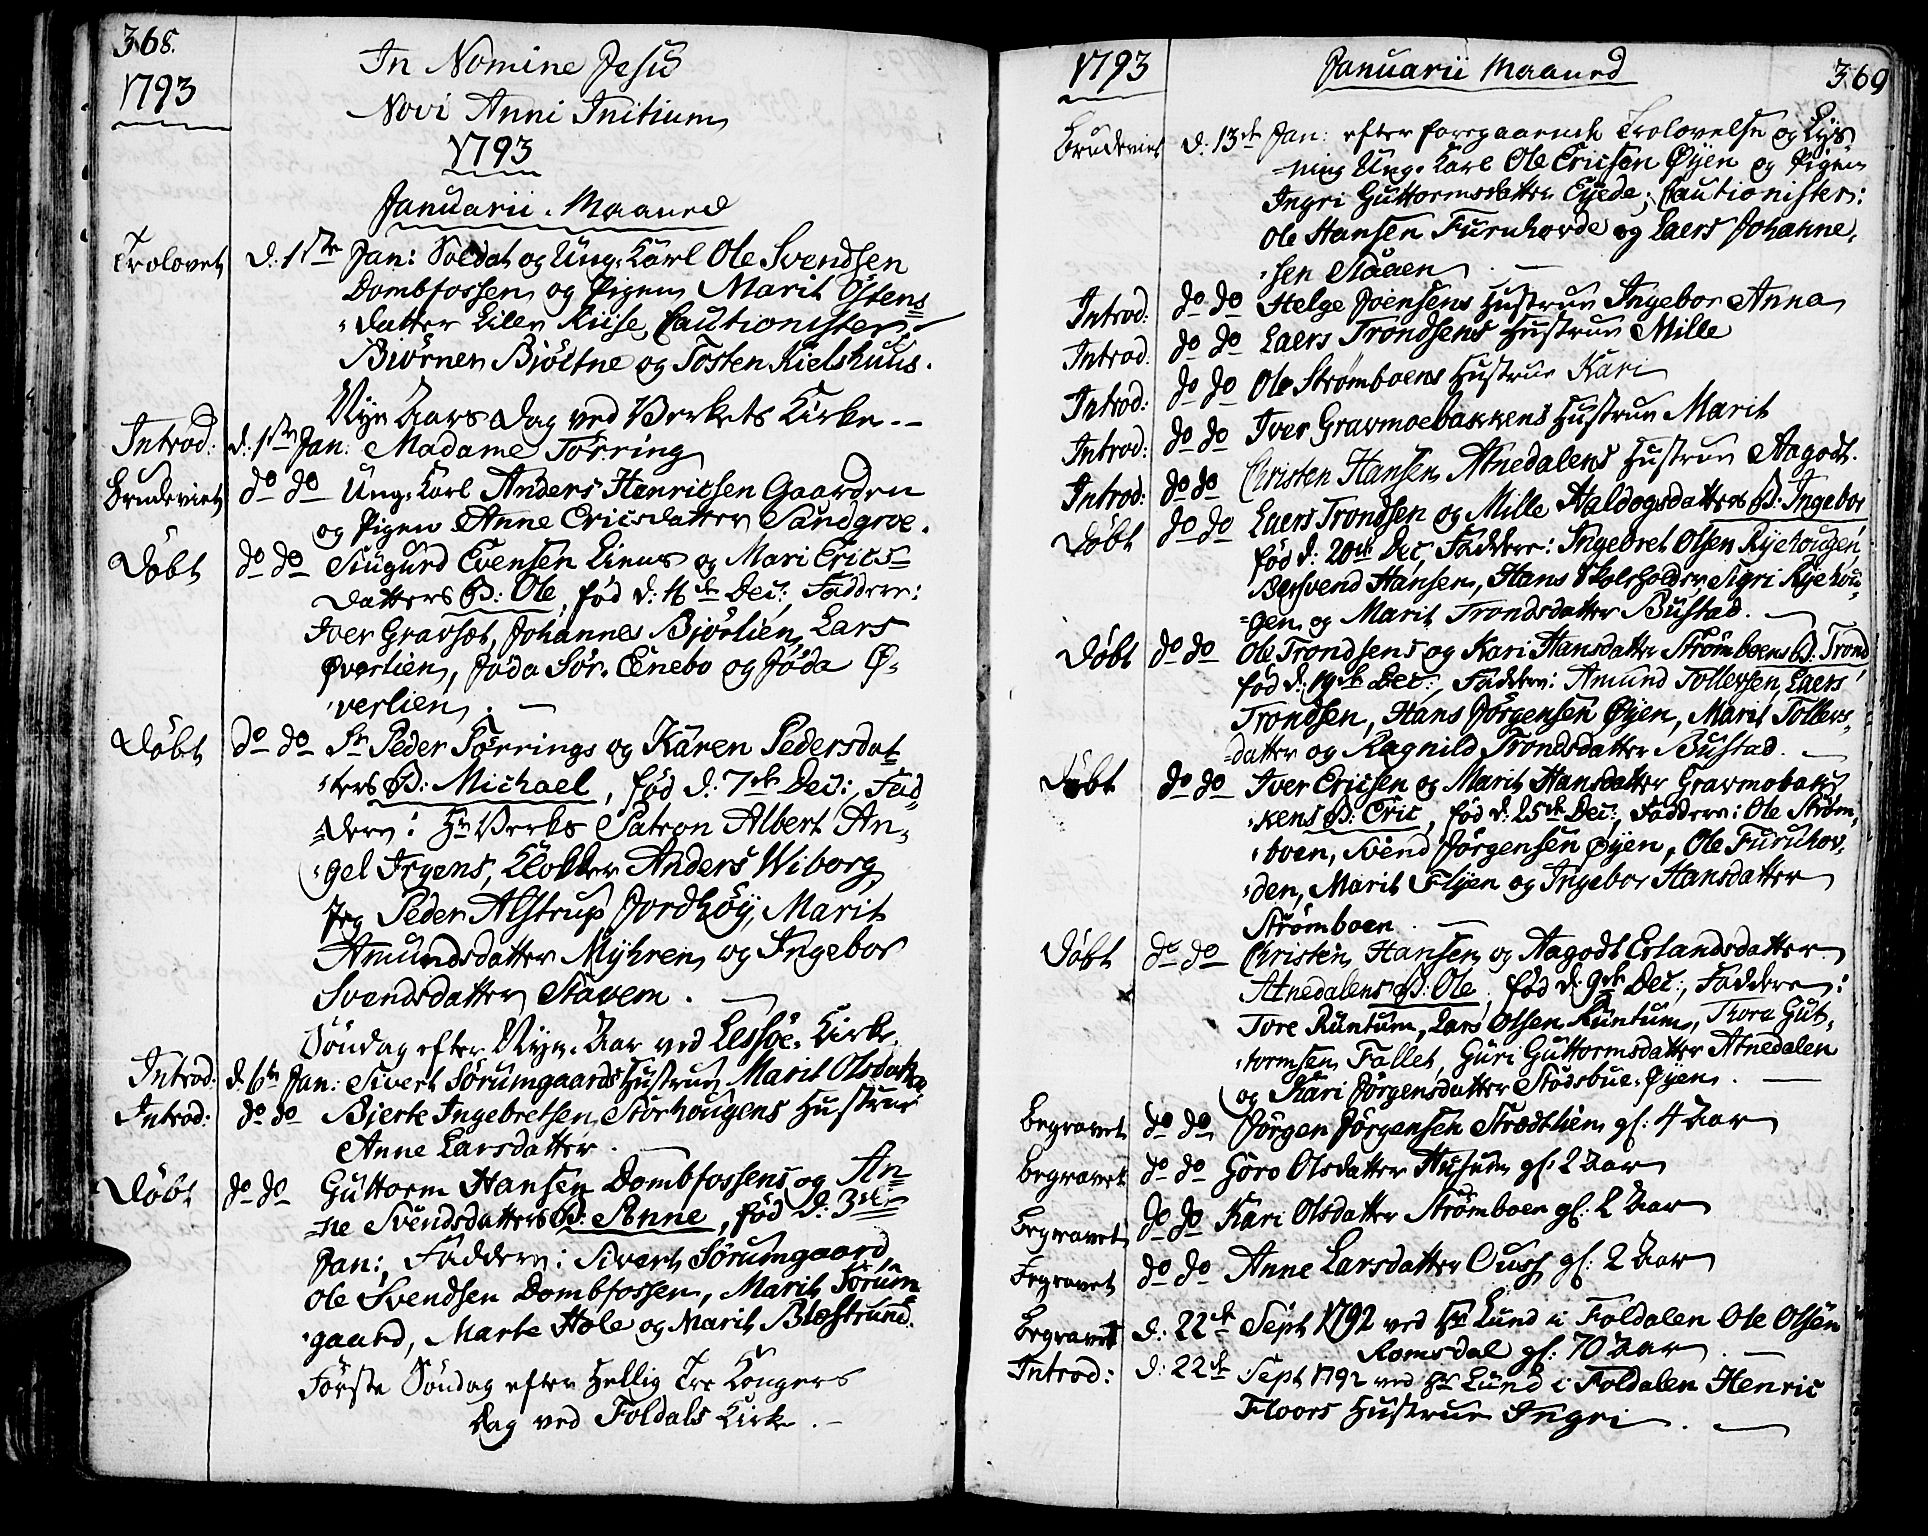 368.
1793
In Nomine Jesu
Novi Anni Initium
1793
Januarii Maaned
Trolovet d: 1ste Jan: Soldat og Ung-Karl Ole Svendsen
Dombfossen og Pigen Marit Østens
datter Lilen Kiise, Cautionister:
Biørnen Biøltne og Tosten Kielshuus.
Nyt Aars Dag ved Verkets Kirke.--
Introd: d: 1ste Jan: Madame Tørring
Brudeviet do do Ung-Karl Anders Henricsen Gaarden
og Pigen Anne Ericsdatter Sandgroe.
Døbt do do Siugurd Evensen Einus og Mari Erics-
datters B: Ole, fød d: 16de Dec: Faddere:
Iver Gravset, Johannes Bjørlien, Lars
Øverlien, Jøda Sør. Enebo og Jøda Ø-
verlien.
Døbt do do Sr Peder Tørrings og Karen Pedersdat
ters B: Michael, fød d: 7de Dec:, Fad-
dere: Hr Verks Patron Albert An-
gel Irgens, Klokker Anders Wiborg,
Jeg Peder Alstrup Jordhøy, Marit
Amundsdatter Myhren og Ingebor
Svendsdatter Stavem.
Søndag efter Nyt-Aar ved Lessøe-Kirke
Introd: d. 6te Jan: Sivert Sørumgaards Hustrue Marit Olsdatter
Introd: do do Bierte Ingebretsen Storhougens Hustrue
Anne Larsdatter.
Døbt do do Guttorm Hansen Dombfossens og An-
ne Svendsdatters B: Anne, fød d: 3die
Jan:, Faddere: Sivert Sørumgaard,
Ole Svendsen Dombfossen, Marit Sørum-
gaard, Marte Hole og Marit Blæstrund.
Første Søndag efter Hellig Tre Kongers
Dag ved Foldals Kirke.
1793 Januarii Maaned 369
Brudeviet d: 13de Jan: efter foregaaende Trolovelse og Lys
ning Ung-Karl Ole Ericsen Øyen og Pigen
Ingri Guttormsdatter Eyede; Cautionister:
Ole Hansen Furuhovde og Laers Johanne-
sen Staaen.
Introd: do do Helge Joensens Hustrue Ingebor Anna
Introd: do do Laers Trondsens Hustrue Mille
Introd: do do Ole Strømboens Hustrue Kari
Introd: do do Iver Gravmoebakkens Hustrue Marit
Introd: do do Christen Hansen Atnedalens Hustrue Aagodt.
Døbt do do Laers Trondsen og Mille Haldogsdatters B: Ingebor
fød d: 20de Dec, Faddere: Ingebret Olsen Ryehougen,
Bersvend Hansen, Hans Skoleholder Sigri Ryehou-
gen og Marit Trondsdatter Bustad.
Døbt do do Ole Trondsens og Kari Hansdatter Strømboens B: Trond
fød d: 19de Dec:, Faddere: Amund Tollersen, Laers
Trondsen, Hans Jørgensen Øyen, Marit Tollers-
datter og Ragnild Trondsdatter Bustad.
Døbt do do Iver Ericsen og Marit Hansdatter Gravmobak
kens B: Eric, fød d: 25de Dec:, Faddere: Ole Strøm-
boen, Svend Jørgensen Øyen, Ole Furuhov-
den, Marit Flyen og Ingebor Hansdatter
Strømboen.
Døbt do do Christen Hansen og Aagodt Erlandsdatter
Atnedalens B: Ole, fød d: 9de Dec:, Faddere:
Tore Runtum, Lars Olsen Runtum, Thora Gut-
tormsen Fallet, Guri Guttormsdatter Atnedalen
og Kari Jørgensdatter Stodsbue-Øyen.
Begravet do do Jørgen Jørgensen Strodtlien gl: 4 Aar
Begravet do do Goro Olsdatter Husum gl: 2 Aar
Begravet do do Kari Olsdatter Strømboen gl: 2 Aar
Begravet do do Anne Larsdatter Ous gl: 2 Aar
Begravet d: 22de Sept 1792 ved Hr Lund i Foldalen Ole Olsen
Romsdal gl: 70 Aar.
Introd: d: 22de Sept 1792 ved Hr Lund i Foldalen Henric
Floors Hustrue Ingri.